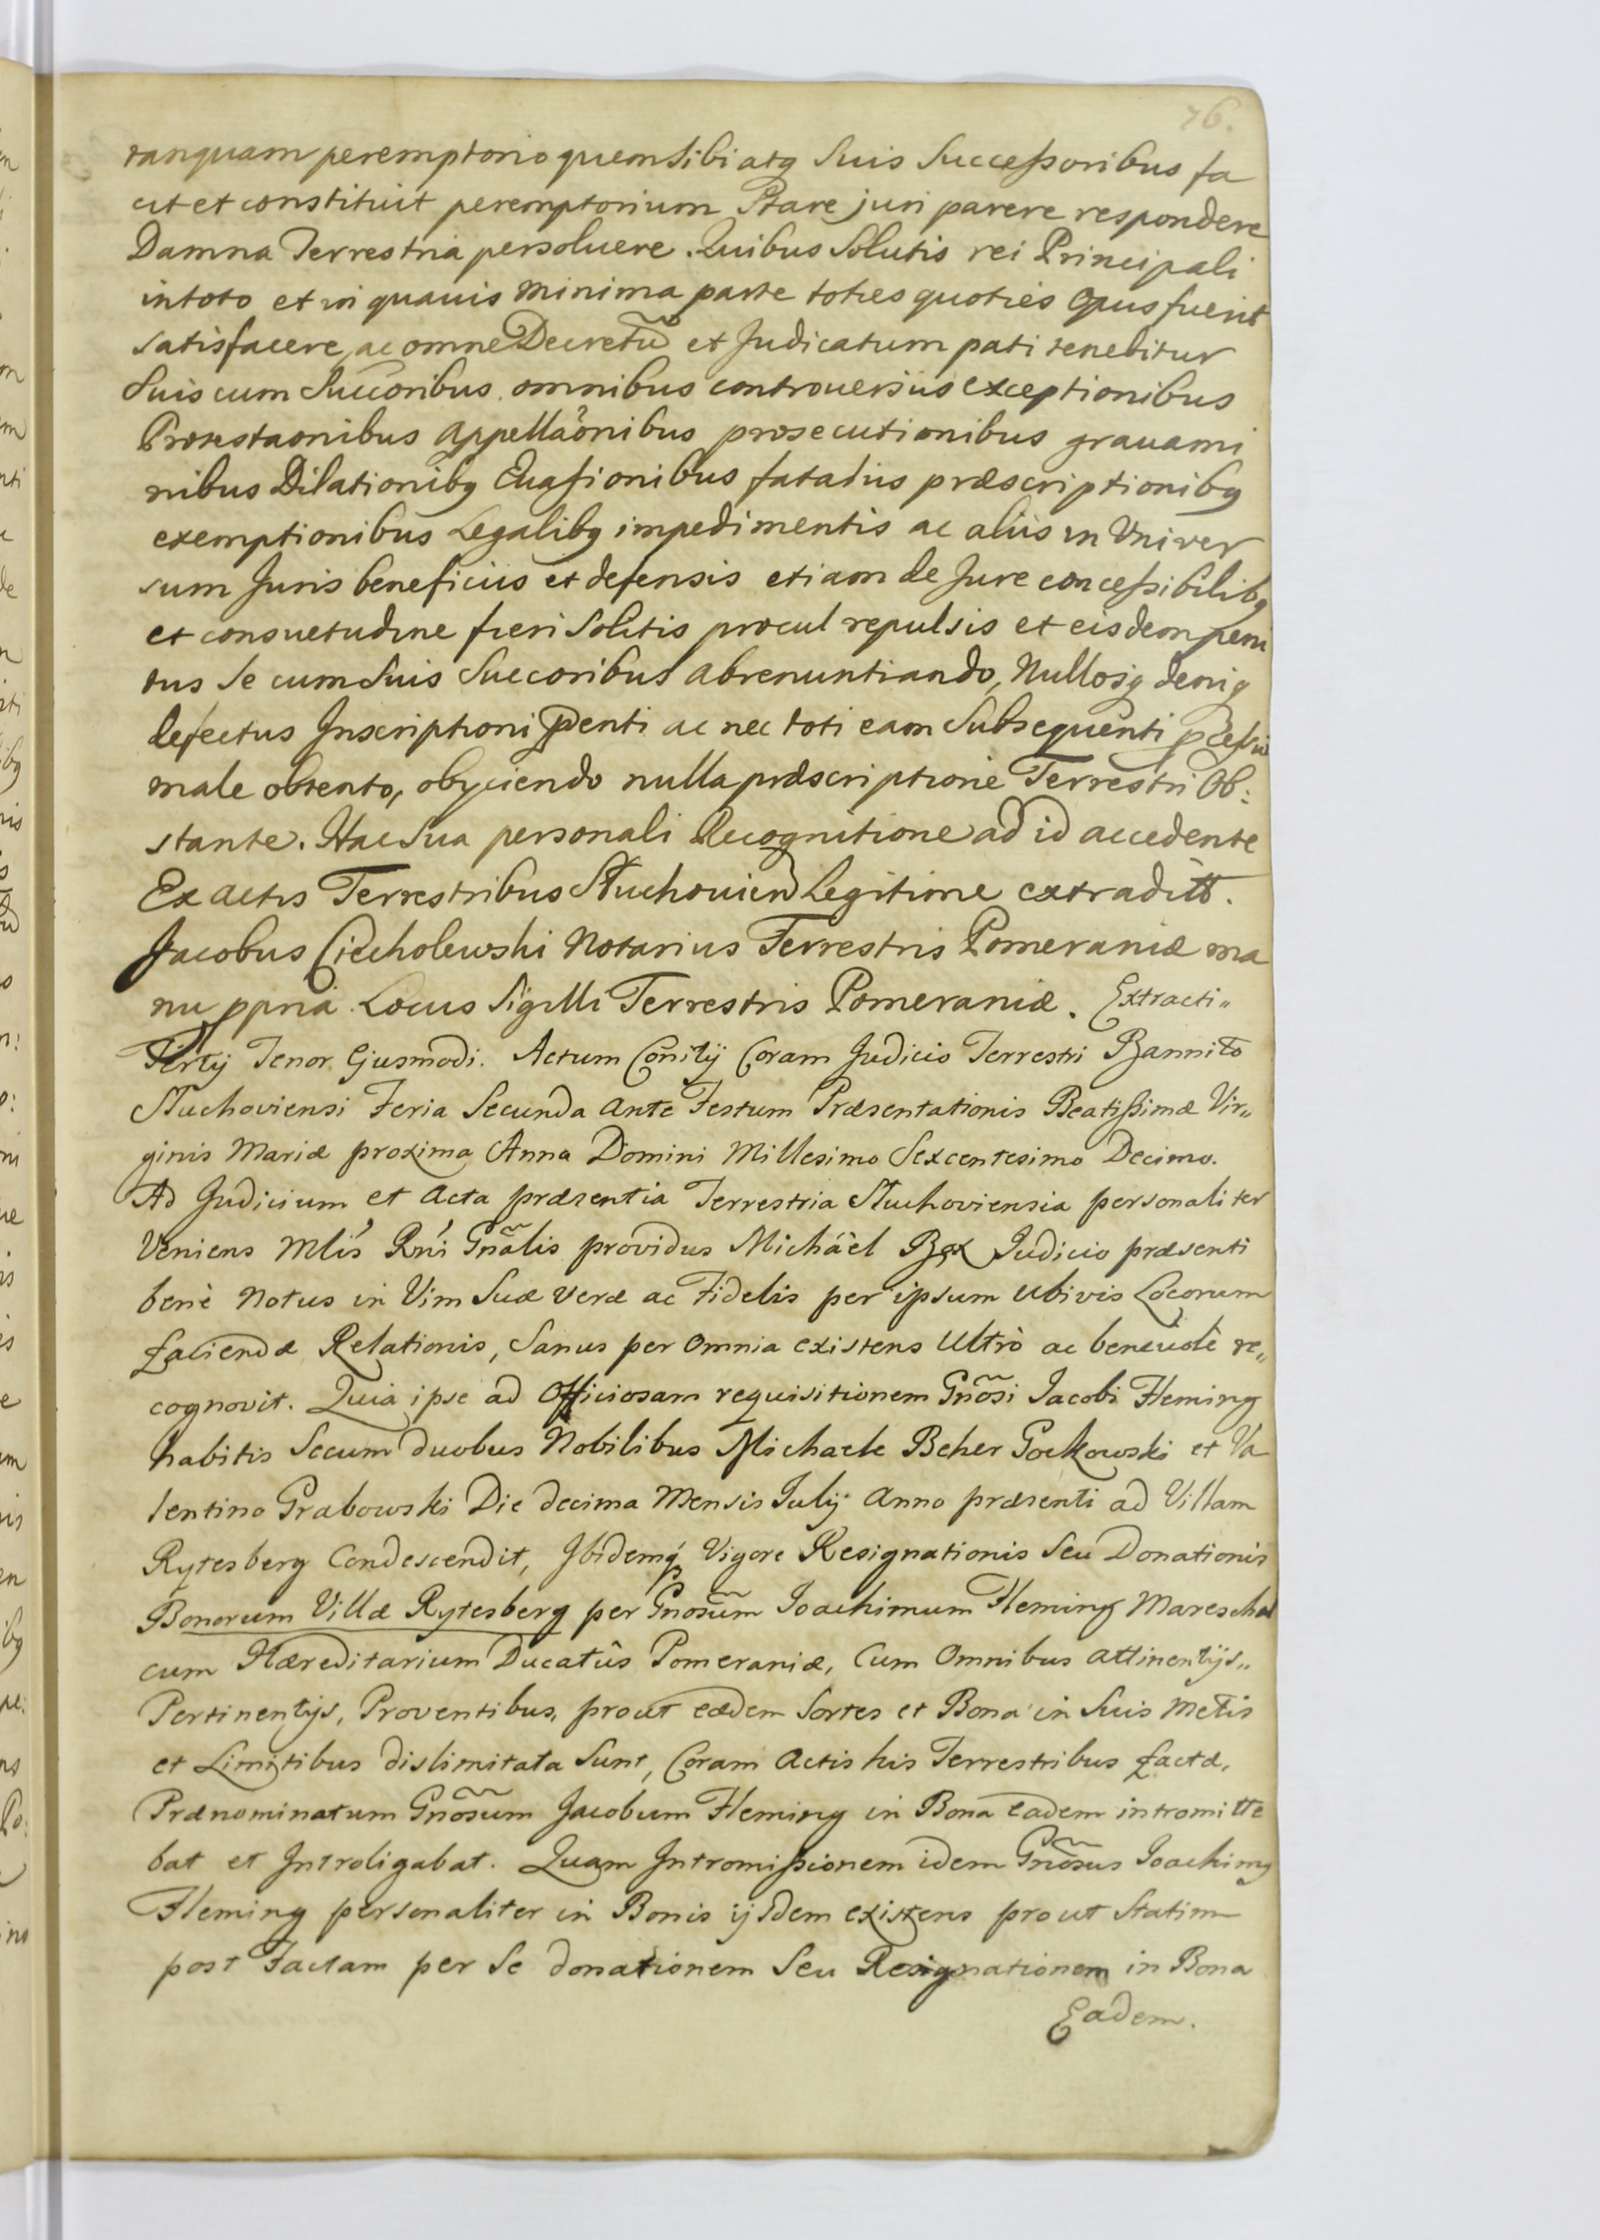 76.
tanquam peremptorio quem sibi atq Suis Successoribus fa
cit et constituit peremptorium Stare juri parere respondere
Damna Terrestria persoluere. Quibus Solutis rei Principali
in toto et in quauis minima parte toties quoties Opus fuerit
satisfacere, ac omne Decretũ et Judicatum pati tenebitur
Suis cum Succoribus omnibus controuersiis exceptionibus
Protestaonibus Appellaõnibus prosecutionibus grauami
nibus Dilationibq Euasionibus fataliis præscriptionibq
exemptionibus Legalibq impedimentis ac aliis in Vniver
sum Juris beneficiis et defensis etiam de Jure concessibilibq
et consuetudine fieri Solitis procul repulsis et eisdem peni
tus Se cum Suis Succoribus abrenuntiando, Nullosq deniq
defectus Inscriptioni ppenti ac nec toti eam Subsequenti pcessui
male obtento, obyciendo nulla præscriptione Terrestri Ob:
stante. Hac Sua personali Recognitione ad id accedente
Ex actis Terrestribus Stuchouien Legitime extraditt.
Jacobus Ciecholewski Notarius Terrestris Pomeraniæ ma
nu ppria. Locus Sigilli Terrestris Pomeraniæ. Extracti„
Tertij Tenor Ejusmodi. Actum Conitij Coram Judicio Terrestri Bannito
Stuchoviensi Feria Secunda ante Festum Præsentationis Beatissimæ Vir„
ginis Mariæ proxima Anna Domini Millesimo Sexcentesimo Decimo.
Ad Judicium et Acta præsentia Terrestria Stuchoviensia personaliter
Veniens Mlis Rni Gnãlis providus Michäel Bęx Judicio præsenti
benè Notus in Vim Suæ veræ ac Fidelis per ipsum ubivis Locorum
faciendæ Relationis, Sanus per Omnia existens Ultrò ac benevolè re„
cognovit. Quia ipse ad Officiosam requisitionem Gnõsi Jacobi Fleming
habitis Secum duobus Nobilibus Michaele Beher Gockowski et Va
lentino Grabowski Die decima Mensis Julij Anno præsenti ad Villam
Rytesberg Condescendit, Ibidemq Vigore Resignationis Seu Donationis
Bonorum Villæ Rytesberg per Gnosũm Joachimum Fleming Mareschal
cum Hæreditarium Ducatûs Pomeraniæ, Cum Omnibus attinentijs„
Pertinentijs, Proventibus, prout eædem Sortes et Bona in Suis Metis
et Limitibus dislimitata Sunt, Coram Actis his Terrestribus factæ,
Prænominatum Gnõsum Jacobum Fleming in Bona eadem intromitte
bat et Introligabat. Quam Intromissionem idem Gnõsus Joachimq
Fleming personaliter in Bonis ijsdem existens prout Statim
post Factam per Se donationem Seu Resignationem in Bona
Eadem.